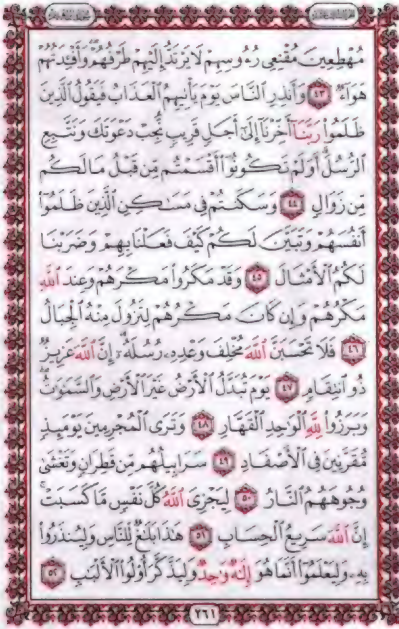 مُهْطِعِينَ مُقْنِعِي رُءُوسِهِمْ لَا يَرْتَدُّ إِلَيْهِمْ طَرْفُهُمْ وَأَفْئِدَتُهُمْ
هَوَآءٌ ٤٣ وَأَنذِرِ ٱلنَّاسَ يَوْمَ يَأْتِيهِمُ ٱلْعَذَابُ فَيَقُولُ ٱلَّذِينَ
ظَلَمُوا۟ رَبَّنَآ أَخِّرْنَآ إِلَىٰٓ أَجَلٍ قَرِيبٍ نُّجِبْ دَعْوَتَكَ وَنَتَّبِعِ
ٱلرُّسُلَ أَوَلَمْ تَكُونُوٓا۟ أَقْسَمْتُم مِّن قَبْلُ مَا لَكُم
مِّن زَوَالٍ ٤٤ وَسَكَنتُمْ فِي مَسَٰكِنِ ٱلَّذِينَ ظَلَمُوٓا۟
أَنفُسَهُمْ وَتَبَيَّنَ لَكُمْ كَيْفَ فَعَلْنَا بِهِمْ وَضَرَبْنَا
لَكُمُ ٱلْأَمْثَالَ ٤٥ وَقَدْ مَكَرُوا۟ مَكْرَهُمْ وَعِندَ ٱللَّهِ
مَكْرُهُمْ وَإِن كَانَ مَكْرُهُمْ لِتَزُولَ مِنْهُ ٱلْجِبَالُ
٤٦ فَلَا تَحْسَبَنَّ ٱللَّهَ مُخْلِفَ وَعْدِهِۦ رُسُلَهُۥٓ إِنَّ ٱللَّهَ عَزِيزٌ
ذُو ٱنتِقَامٍ ٤٧ يَوْمَ تُبَدَّلُ ٱلْأَرْضُ غَيْرَ ٱلْأَرْضِ وَٱلسَّمَٰوَٰتُ
وَبَرَزُوا۟ لِلَّهِ ٱلْوَٰحِدِ ٱلْقَهَّارِ ٤٨ وَتَرَى ٱلْمُجْرِمِينَ يَوْمَئِذٍ
مُّقَرَّنِينَ فِي ٱلْأَصْفَادِ ٤٩ سَرَابِيلُهُم مِّن قَطِرَانٍ وَتَغْشَىٰ
وُجُوهَهُمُ ٱلنَّارُ ٥٠ لِيَجْزِيَ ٱللَّهُ كُلَّ نَفْسٍ مَّا كَسَبَتْ
إِنَّ ٱللَّهَ سَرِيعُ ٱلْحِسَابِ ٥١ هَٰذَا بَلَٰغٌ لِّلنَّاسِ وَلِيُنذَرُوا۟
بِهِۦ وَلِيَعْلَمُوٓا۟ أَنَّمَا هُوَ إِلَٰهٌ وَٰحِدٌ وَلِيَذَّكَّرَ أُو۟لُوا۟ ٱلْأَلْبَٰبِ ٥٢
٢٦١